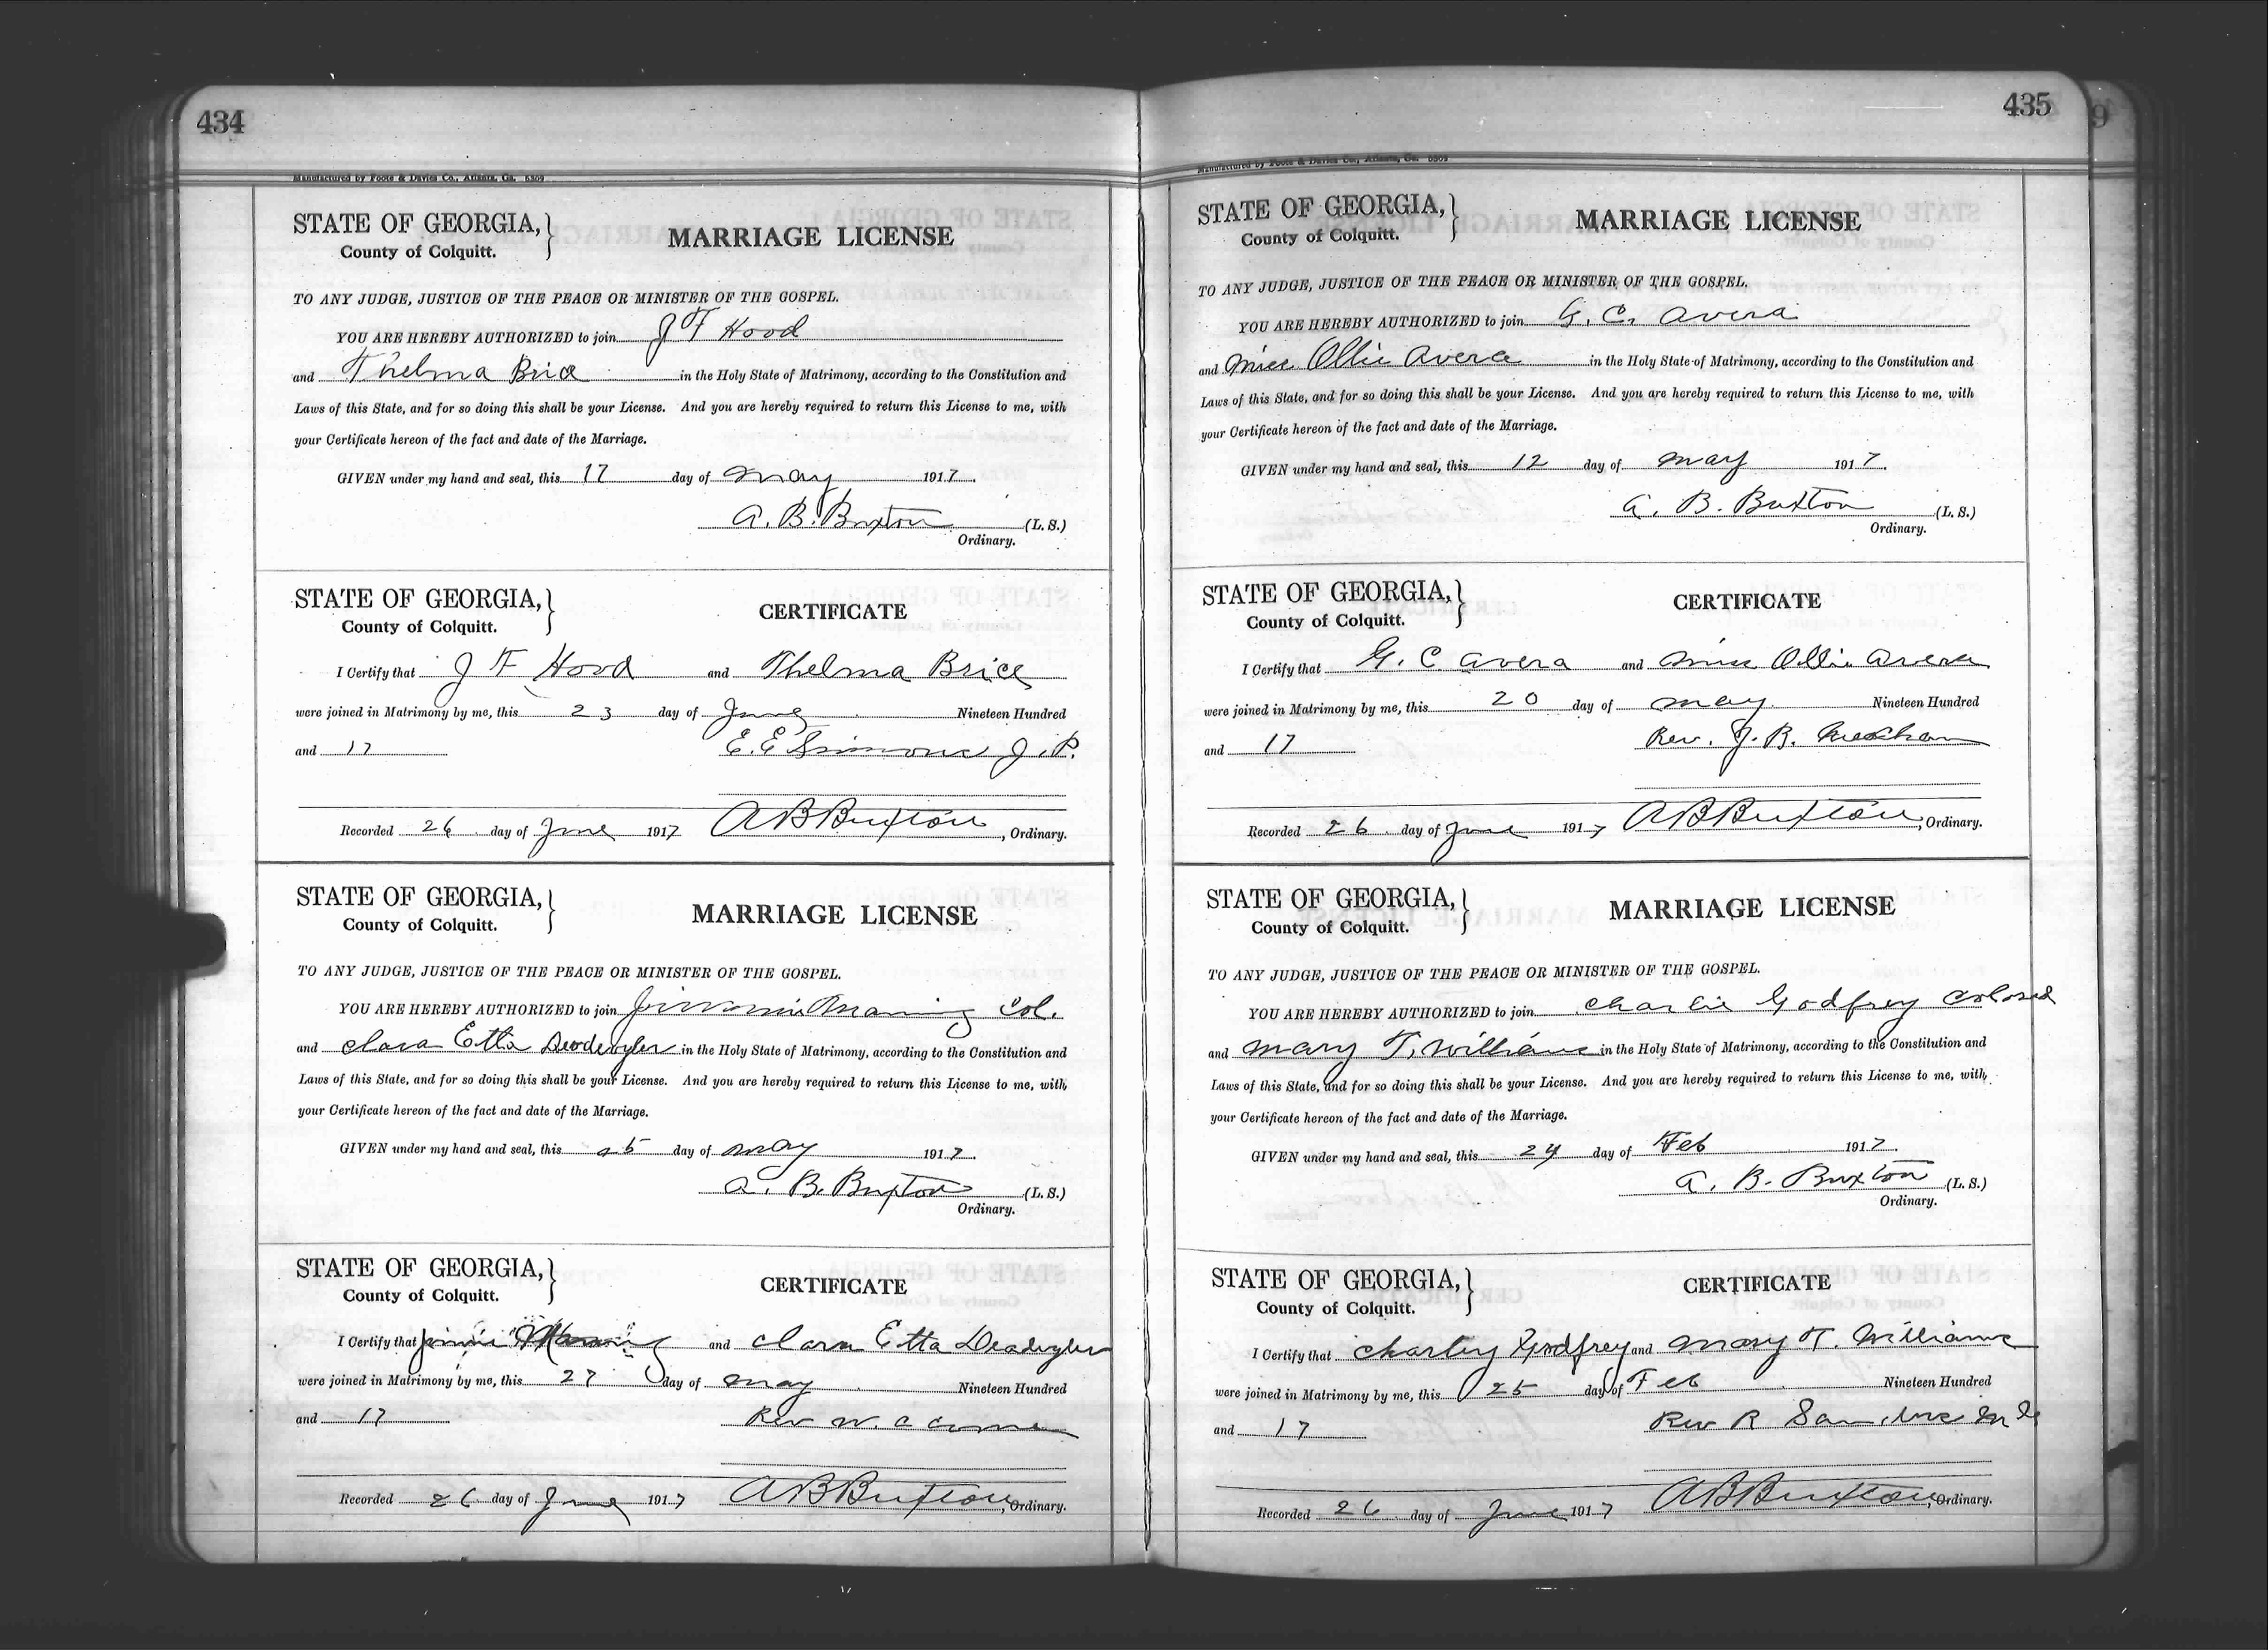 434
Manufactured by Foote & Davies Co., Atlanta, Ga. 6309
STATE OF GEORGIA,
County of Colquitt.
MARRIAGE LICENSE
TO ANY JUDGE, JUSTICE OF THE PEACE OR MINISTER OF THE GOSPEL.
YOU ARE HEREBY AUTHORIZED to join J F Hood
and Thelma Brice in the Holy State of Matrimony, according to the Constitution and
Laws of this State, and for so doing this shall be your License. And you are hereby required to return this License to me, with
your Certificate hereon of the fact and date of the Marriage.
GIVEN under my hand and seal, this 17 day of May 1917.
A. B. Buxton (L. S.)
Ordinary.
STATE OF GEORGIA,
County of Colquitt.
CERTIFICATE
I Certify that J F Hood and Thelma Brice
were joined in Matrimony by me, this 23 day of June Nineteen Hundred
and 17 E. E Simmons J. P.
Recorded 26 day of June 1917 A B Buxton, Ordinary.
STATE OF GEORGIA,
County of Colquitt.
MARRIAGE LICENSE
TO ANY JUDGE, JUSTICE OF THE PEACE OR MINISTER OF THE GOSPEL.
YOU ARE HEREBY AUTHORIZED to join Jimmie Maning Col.
and Clara Etta in the Holy State of Matrimony, according to the Constitution and
Laws of this State, and for so doing this shall be your License. And you are hereby required to return this License to me, with
your Certificate hereon of the fact and date of the Marriage.
GIVEN under my hand and seal, this 25 day of May 1917.
A. B. Buxton (L. S.)
Ordinary.
STATE OF GEORGIA,
County of Colquitt.
CERTIFICATE
I Certify that Jimmie Maning and Clara Etta Deadwyler
were joined in Matrimony by me, this 27 day of May Nineteen Hundred
and 17 Rev W. C
Recorded 26 day of June 1917 A B Buxton, Ordinary.
435
Manufactured by Foote & Davies Co., Atlanta, Ga. 6309
STATE OF GEORGIA,
County of Colquitt.
MARRIAGE LICENSE
TO ANY JUDGE, JUSTICE OF THE PEACE OR MINISTER OF THE GOSPEL.
YOU ARE HEREBY AUTHORIZED to join G. C. Avera
and Miss Ollie Avera in the Holy State of Matrimony, according to the Constitution and
Laws of this State, and for so doing this shall be your License. And you are hereby required to return this License to me, with
your Certificate hereon of the fact and date of the Marriage.
GIVEN under my hand and seal, this 12 day of May 1917.
A. B. Buxton (L. S.)
Ordinary.
STATE OF GEORGIA,
County of Colquitt.
CERTIFICATE
I Certify that G. C Avera and Miss Ollie Avera
were joined in Matrimony by me, this 20 day of May Nineteen Hundred
and 17 Rev. J. B.
Recorded 26 day of June 1917 A B Buxton, Ordinary.
STATE OF GEORGIA,
County of Colquitt.
MARRIAGE LICENSE
TO ANY JUDGE, JUSTICE OF THE PEACE OR MINISTER OF THE GOSPEL.
YOU ARE HEREBY AUTHORIZED to join Charlie Godfrey Colored
and Mary T. Williams in the Holy State of Matrimony, according to the Constitution and
Laws of this State, and for so doing this shall be your License. And you are hereby required to return this License to me, with
your Certificate hereon of the fact and date of the Marriage.
GIVEN under my hand and seal, this 24 day of Feb 1917.
A. B. Buxton (L. S.)
Ordinary.
STATE OF GEORGIA,
County of Colquitt.
CERTIFICATE
I Certify that Charley Godfrey and Mary T. Williams
were joined in Matrimony by me, this 25 day of Feb Nineteen Hundred
and 17 Rev R M G
Recorded 26 day of June 1917 A B Buxton, Ordinary.